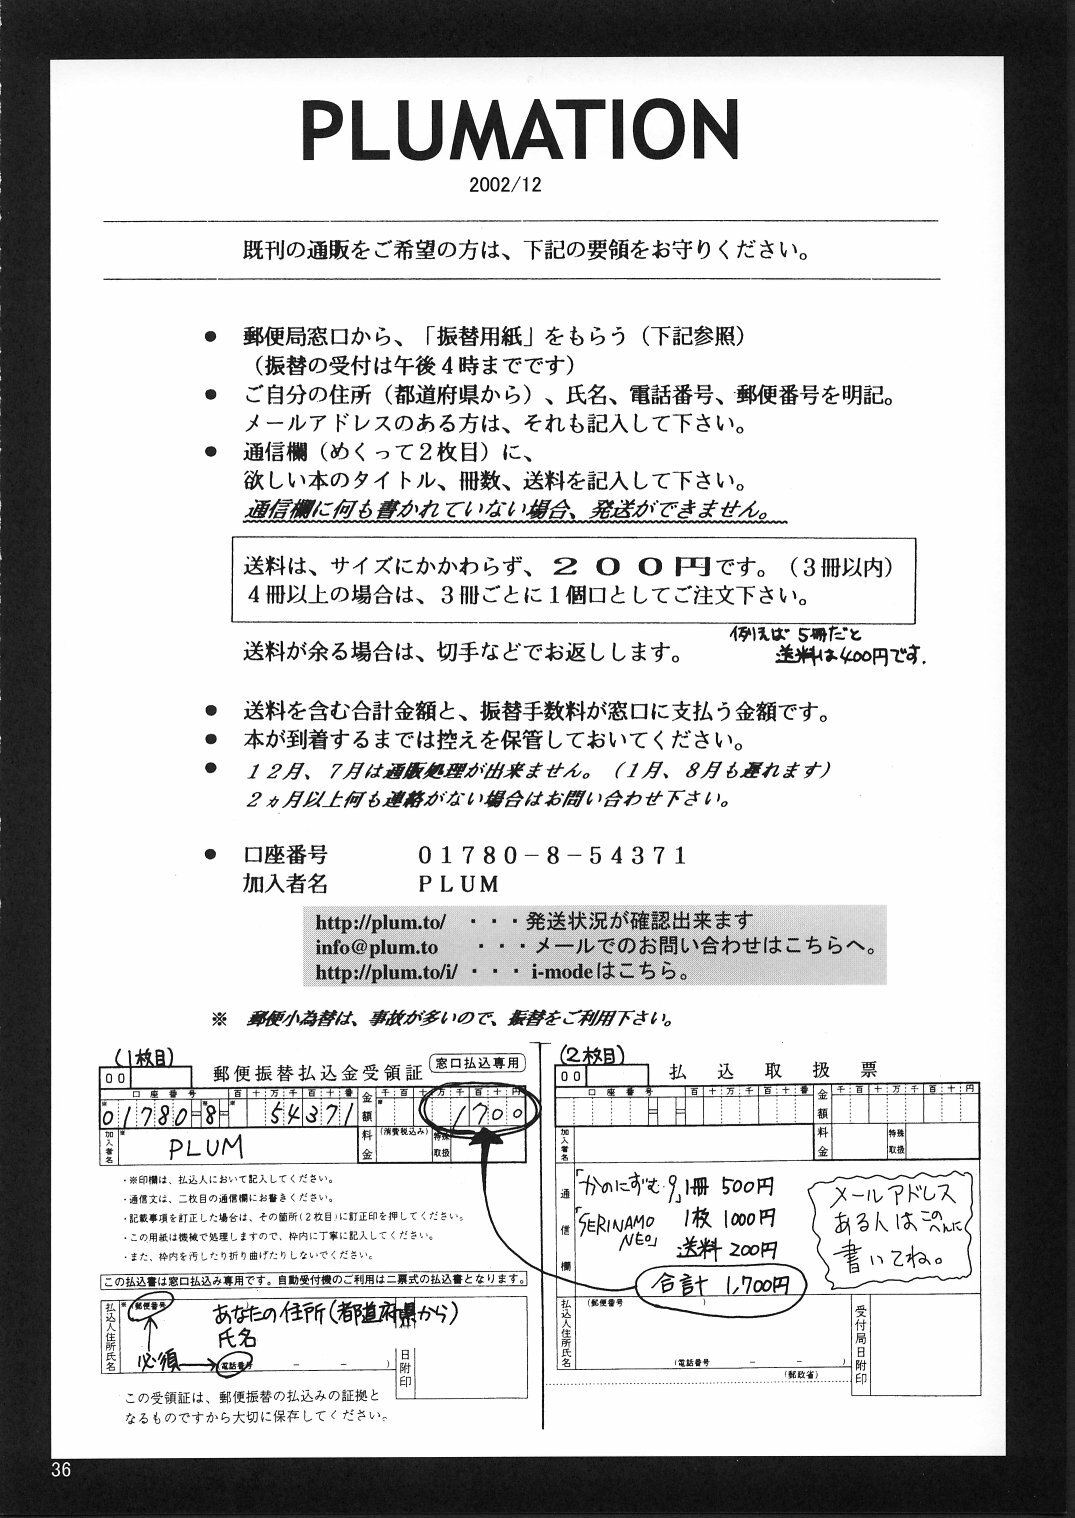 PLUMATION
2002/12
既刊の通販をご希望の方は、下記の要領をお守りください。
● 郵便局窓口から、「振替用紙」をもらう（下記参照）
（振替の受付は午後４時までです）
● ご自分の住所（都道府県から）、氏名、電話番号、郵便番号を明記。
メールアドレスのある方は、それも記入して下さい。
● 通信欄（めくって２枚目）に、
欲しい本のタイトル、冊数、送料を記入して下さい。
通信欄に何も書かれていない場合、発送ができません。
送料は、サイズにかかわらず、２００円です。（３冊以内）
４冊以上の場合は、３冊ごとに１個口としてご注文下さい。
例えば 5冊だと
送料は400円です.
送料が余る場合は、切手などでお返しします。
● 送料を含む合計金額と、振替手数料が窓口に支払う金額です。
● 本が到着するまでは控えを保管しておいてください。
● １２月、７月は通販処理が出来ません。（１月、８月も遅れます）
２ヵ月以上何も連絡がない場合はお問い合わせ下さい。
● 口座番号 ０１７８０－８－５４３７１
加入者名 ＰＬＵＭ
http://plum.to/ ・・・発送状況が確認出来ます
info@plum.to ・・・メールでのお問い合わせはこちらへ。
http://plum.to/i/ ・・・ i-modeはこちら。
※ 郵便小為替は、事故が多いので、振替をご利用下さい。
(1枚目)
00
郵便振替払込金受領証
窓口払込専用
口座番号 百十万千百十番
金額 千百十万千百十円
01780-8- 54371
1700
加入者名
PLUM
料金
(消費税込み)
特殊取扱
・※印欄は、払込人において記入してください。
・通信文は、二枚目の通信欄にお書きください。
・記載事項を訂正した場合は、その箇所(２枚目)に訂正印を押してください。
・この用紙は機械で処理しますので、枠内に丁寧に記入してください。
・また、枠内を汚したり折り曲げたりしないでください。
この払込書は窓口払込み専用です。自動受付機のご利用は二票式の払込書となります。
払込人住所氏名
(郵便番号
あなたの住所(都道府県から)
氏名
必須→
(電話番号 － － )
日附印
この受領証は、郵便振替の払込みの証拠と
なるものですから大切に保存してください。
(2枚目)
00
払込取扱票
口座番号 百十万千百十番
金額 千百十万千百十円
加入者名
料金
特殊取扱
通信欄
「かのにずむ・9」1冊 500円
「SERINAMO NEO」 1枚 1000円
送料 200円
合計 1,700円
メールアドレス
ある人はこのへんに
書いてね。
払込人住所氏名
(郵便番号 )
(電話番号 － － )
(郵政省)
受付局日附印
36